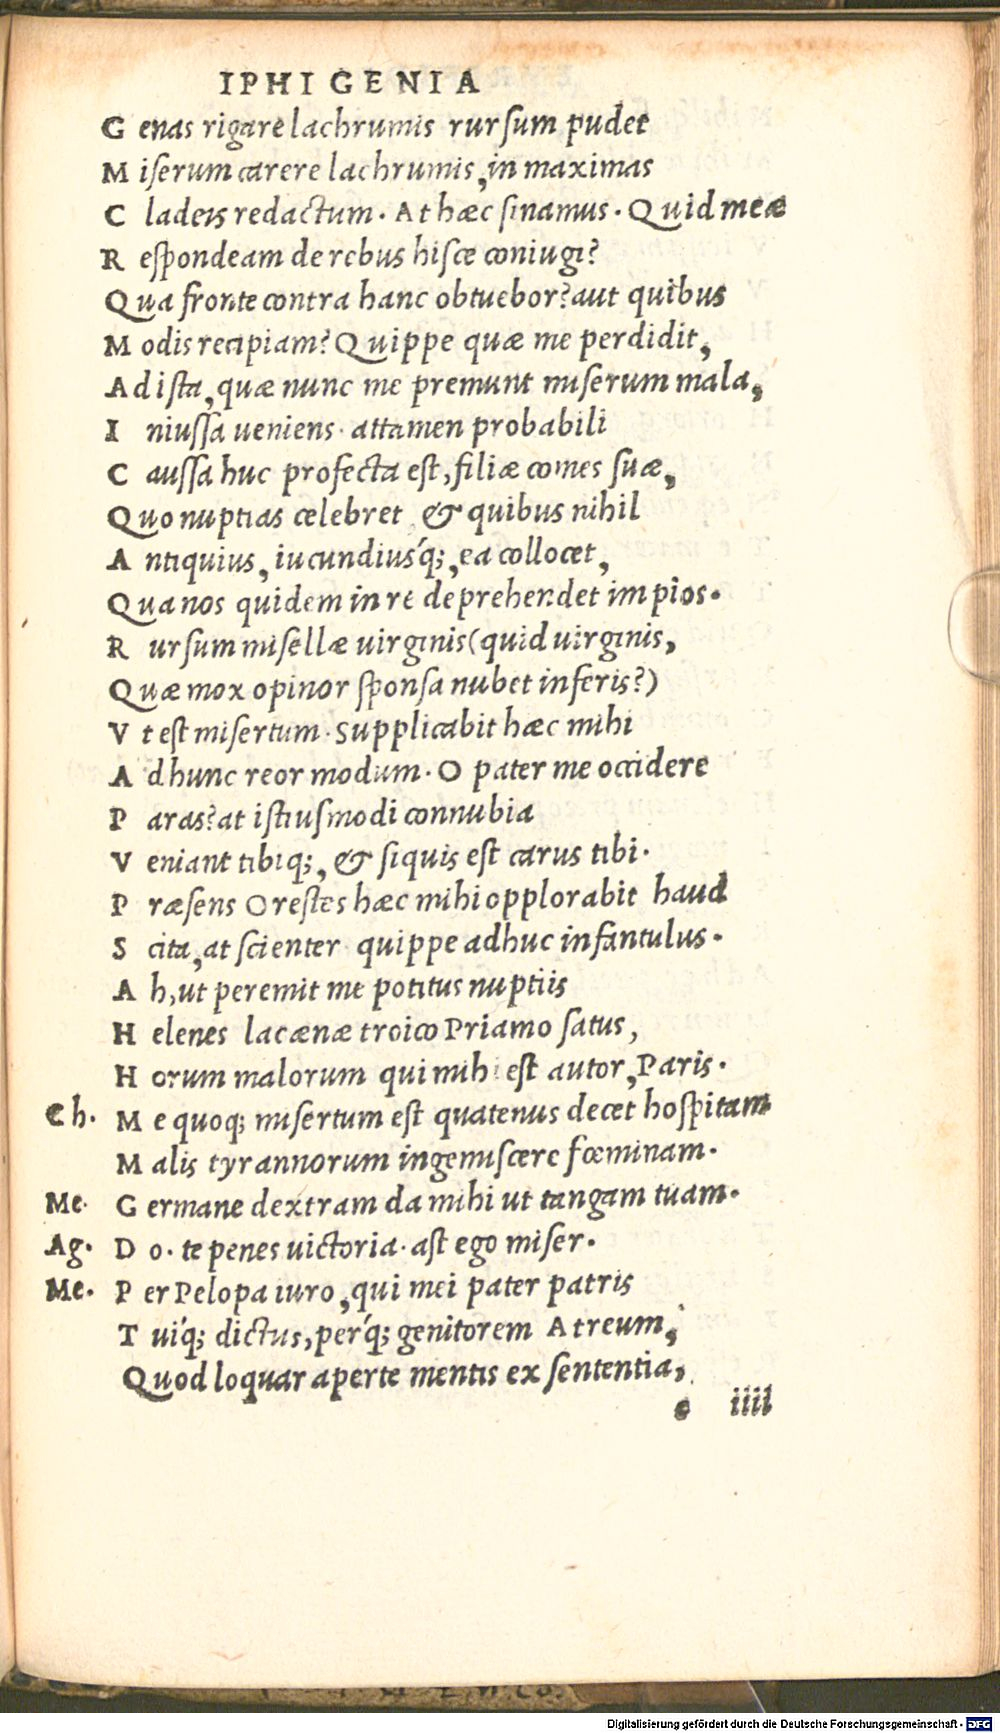 IPHIGENIA
G enas rigare lachrumis rursum pudet
M iserum carere lachrumis, in maximas
C ladeis redactum. At hæc sinamus. Quid meæ
R espondeam de rebus hisce coniugi?
Qua fronte contra hanc obtuebor? aut quibus
M odis recipiam? Quippe quæ me perdidit,
A d ista, quæ nunc me premunt miserum mala,
I niussa ueniens. attamen probabili
C aussa huc profecta est, filiæ comes suæ,
Quo nuptias celebret, & quibus nihil
A ntiquius, iucundiusq́;, ea collocet,
Qua nos quidem in re deprehendet impios.
R ursum misellæ uirginis (quid uirginis,
Quæ mox opinor sponsa nubet inferis?)
V t est misertum. Supplicabit hæc mihi
A d hunc reor modum. O pater me occidere
P aras? at istiusmodi connubia
V eniant tibiq;, & siquis est carus tibi.
P ræsens Orestes hæc mihi opplorabit haud
S cita, at scienter quippe adhuc infantulus.
A h, ut peremit me potitus nuptiis
H elenes lacænæ troico Priamo satus,
H orum malorum qui mihi est autor, Paris.
Ch. M e quoq; misertum est quatenus decet hospitam
M alis tyrannorum ingemiscere fœminam.
Me. G ermane dextram da mihi ut tangam tuam.
Ag. D o. te penes uictoria. ast ego miser.
Me. P er Pelopa iuro, qui mei pater patris
T uiq́; dictus, perq́; genitorem Atreum,
Quod loquar aperte mentis ex sententia,
e iiii
Digitalisierung gefördert durch die Deutsche Forschungsgemeinschaft - DFG